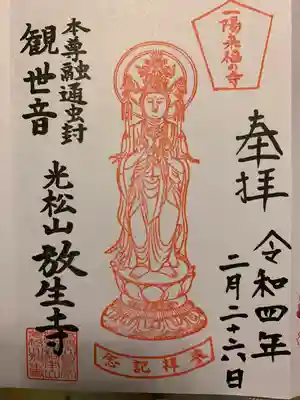 一陽来復の寺
奉拝
令和四年
二月二十六日
来拝記念
本尊融通虫封
観世音
光松山放生寺